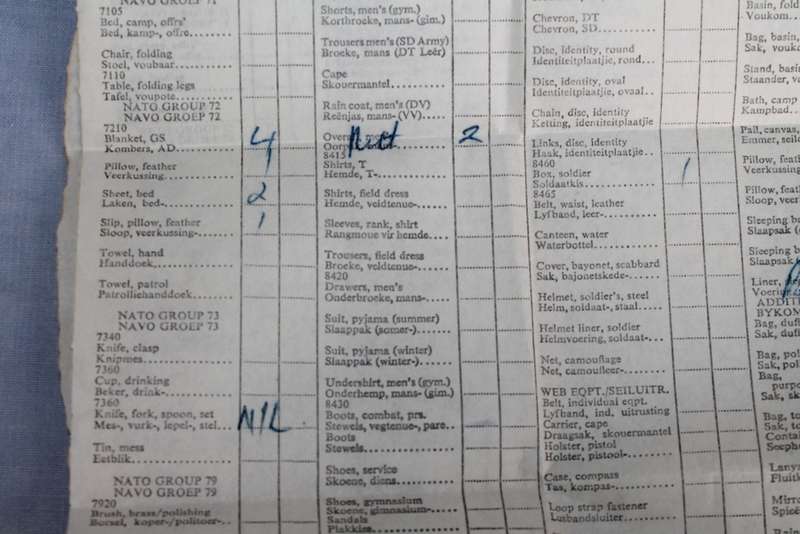 NAVO GROEP 71
7105
Bed, camp, offrs'
Bed, kamp-, offre.
Chair, folding
Stoel, voubaar
7110
Table, folding legs
Tafel, voupote
NATO GROUP 72
NAVO GROEP 72
7210
Blanket, GS
Kombers, AD. 4
Pillow, feather
Veerkussing 1
Sheet, bed
Laken, bed- 2
Slip, pillow, feather
Sloop, veerkussing- 1
Towel, hand
Handdoek
Towel, patrol
Patrolliehanddoek
NATO GROUP 73
NAVO GROEP 73
7340
Knife, clasp
Knipmes
7360
Cup, drinking
Beker, drink-
7360
Knife, fork, spoon, set
Mes-, vurk-, lepel-, stel NIL
Tin, mess
Eetblik
NATO GROUP 79
NAVO GROEP 79
7920
Brush, brass/polishing
Borsel, koper-/politoer-
Shorts, men's (gym.)
Kortbroeke, mans- (gim.)
Trousers men's (SD Army)
Broeke, mans (DT Leër)
Cape
Skouermantel
Rain coat, men's (DV)
Reënjas, mans- (VV)
2
8415
Shirts, T
Hemde, T-
Shirts, field dress
Hemde, veldtenue-
Sleeves, rank, shirt
Rangmoue vir hemde
Trousers, field dress
Broeke, veldtenue-
8420
Drawers, men's
Onderbroeke, mans-
Suit, pyjama (summer)
Slaappak (somer-)
Suit, pyjama (winter)
Slaappak (winter-)
Undershirt, men's (gym.)
Onderhemp, mans- (gim.)
8430
Boots, combat, prs.
Stewels, vegtenue-, pare
Boots
Stewels
Shoes, service
Skoene, diens
Shoes, gymnasium
Skoene, gimnasium-
Sandals
Plakkies
Chevron, DT
Chevron, SD
Disc, identity, round
Identiteitplaatjie, rond
Disc, identity, oval
Identiteitplaatjie, ovaal
Chain, disc, identity
Ketting, identiteitplaatjie
Links, disc, identity
Haak, identiteitplaatjie
8460
Box, soldier
Soldaatkis 1
8465
Belt, waist, leather
Lyfband, leer-
Canteen, water
Waterbottel
Cover, bayonet, scabbard
Sak, bajonetskede-
Helmet, soldier's, steel
Helm, soldaat-, staal
Helmet liner, soldier
Helmvoering, soldaat-
Net, camouflage
Net, kamoufleer-
WEB EQPT./SEILUITR.
Belt, individual eqpt.
Lyfband, ind. uitrusting
Carrier, cape
Draagsak, skouermantel
Holster, pistol
Holster, pistool-
Case, compass
Tas, kompas-
Loop strap fastener
Lusbandsluiter
Basin, fold
Voukom
Bag, basin,
Sak, voukom
Stand, basin
Staander, va
Bath, camp
Kampbad
Pail, canvas,
Emmer, seil
Pillow, feather
Veerkussing
Pillow, feath
Sloop, veer
Sleeping b
Slaapsak (
Sleeping b
Slaapsak
Liner,
Voering
ADDITI
BYKOM
Bag, duff
Sak, duff
Bag, pol
Sak, pol
Bag,
purpo
Sak, sk
Bag, to
Sak, to
Conta
Seeph
Lany
Fluit
Mirro
Spieë